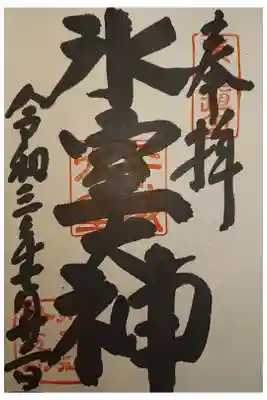 奉拝
氷室大神
令和三年七月廿一日